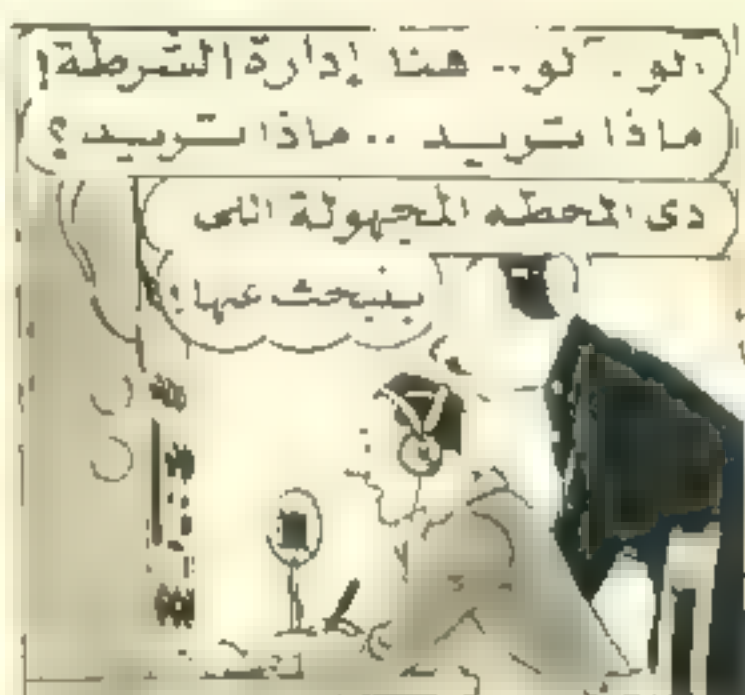 آلو .. آلو .. هنا إدارة الشرطة!
ماذا تريد .. ماذا تريد ؟
دى المحطه المجهولة اللى
بنبحث عنها!